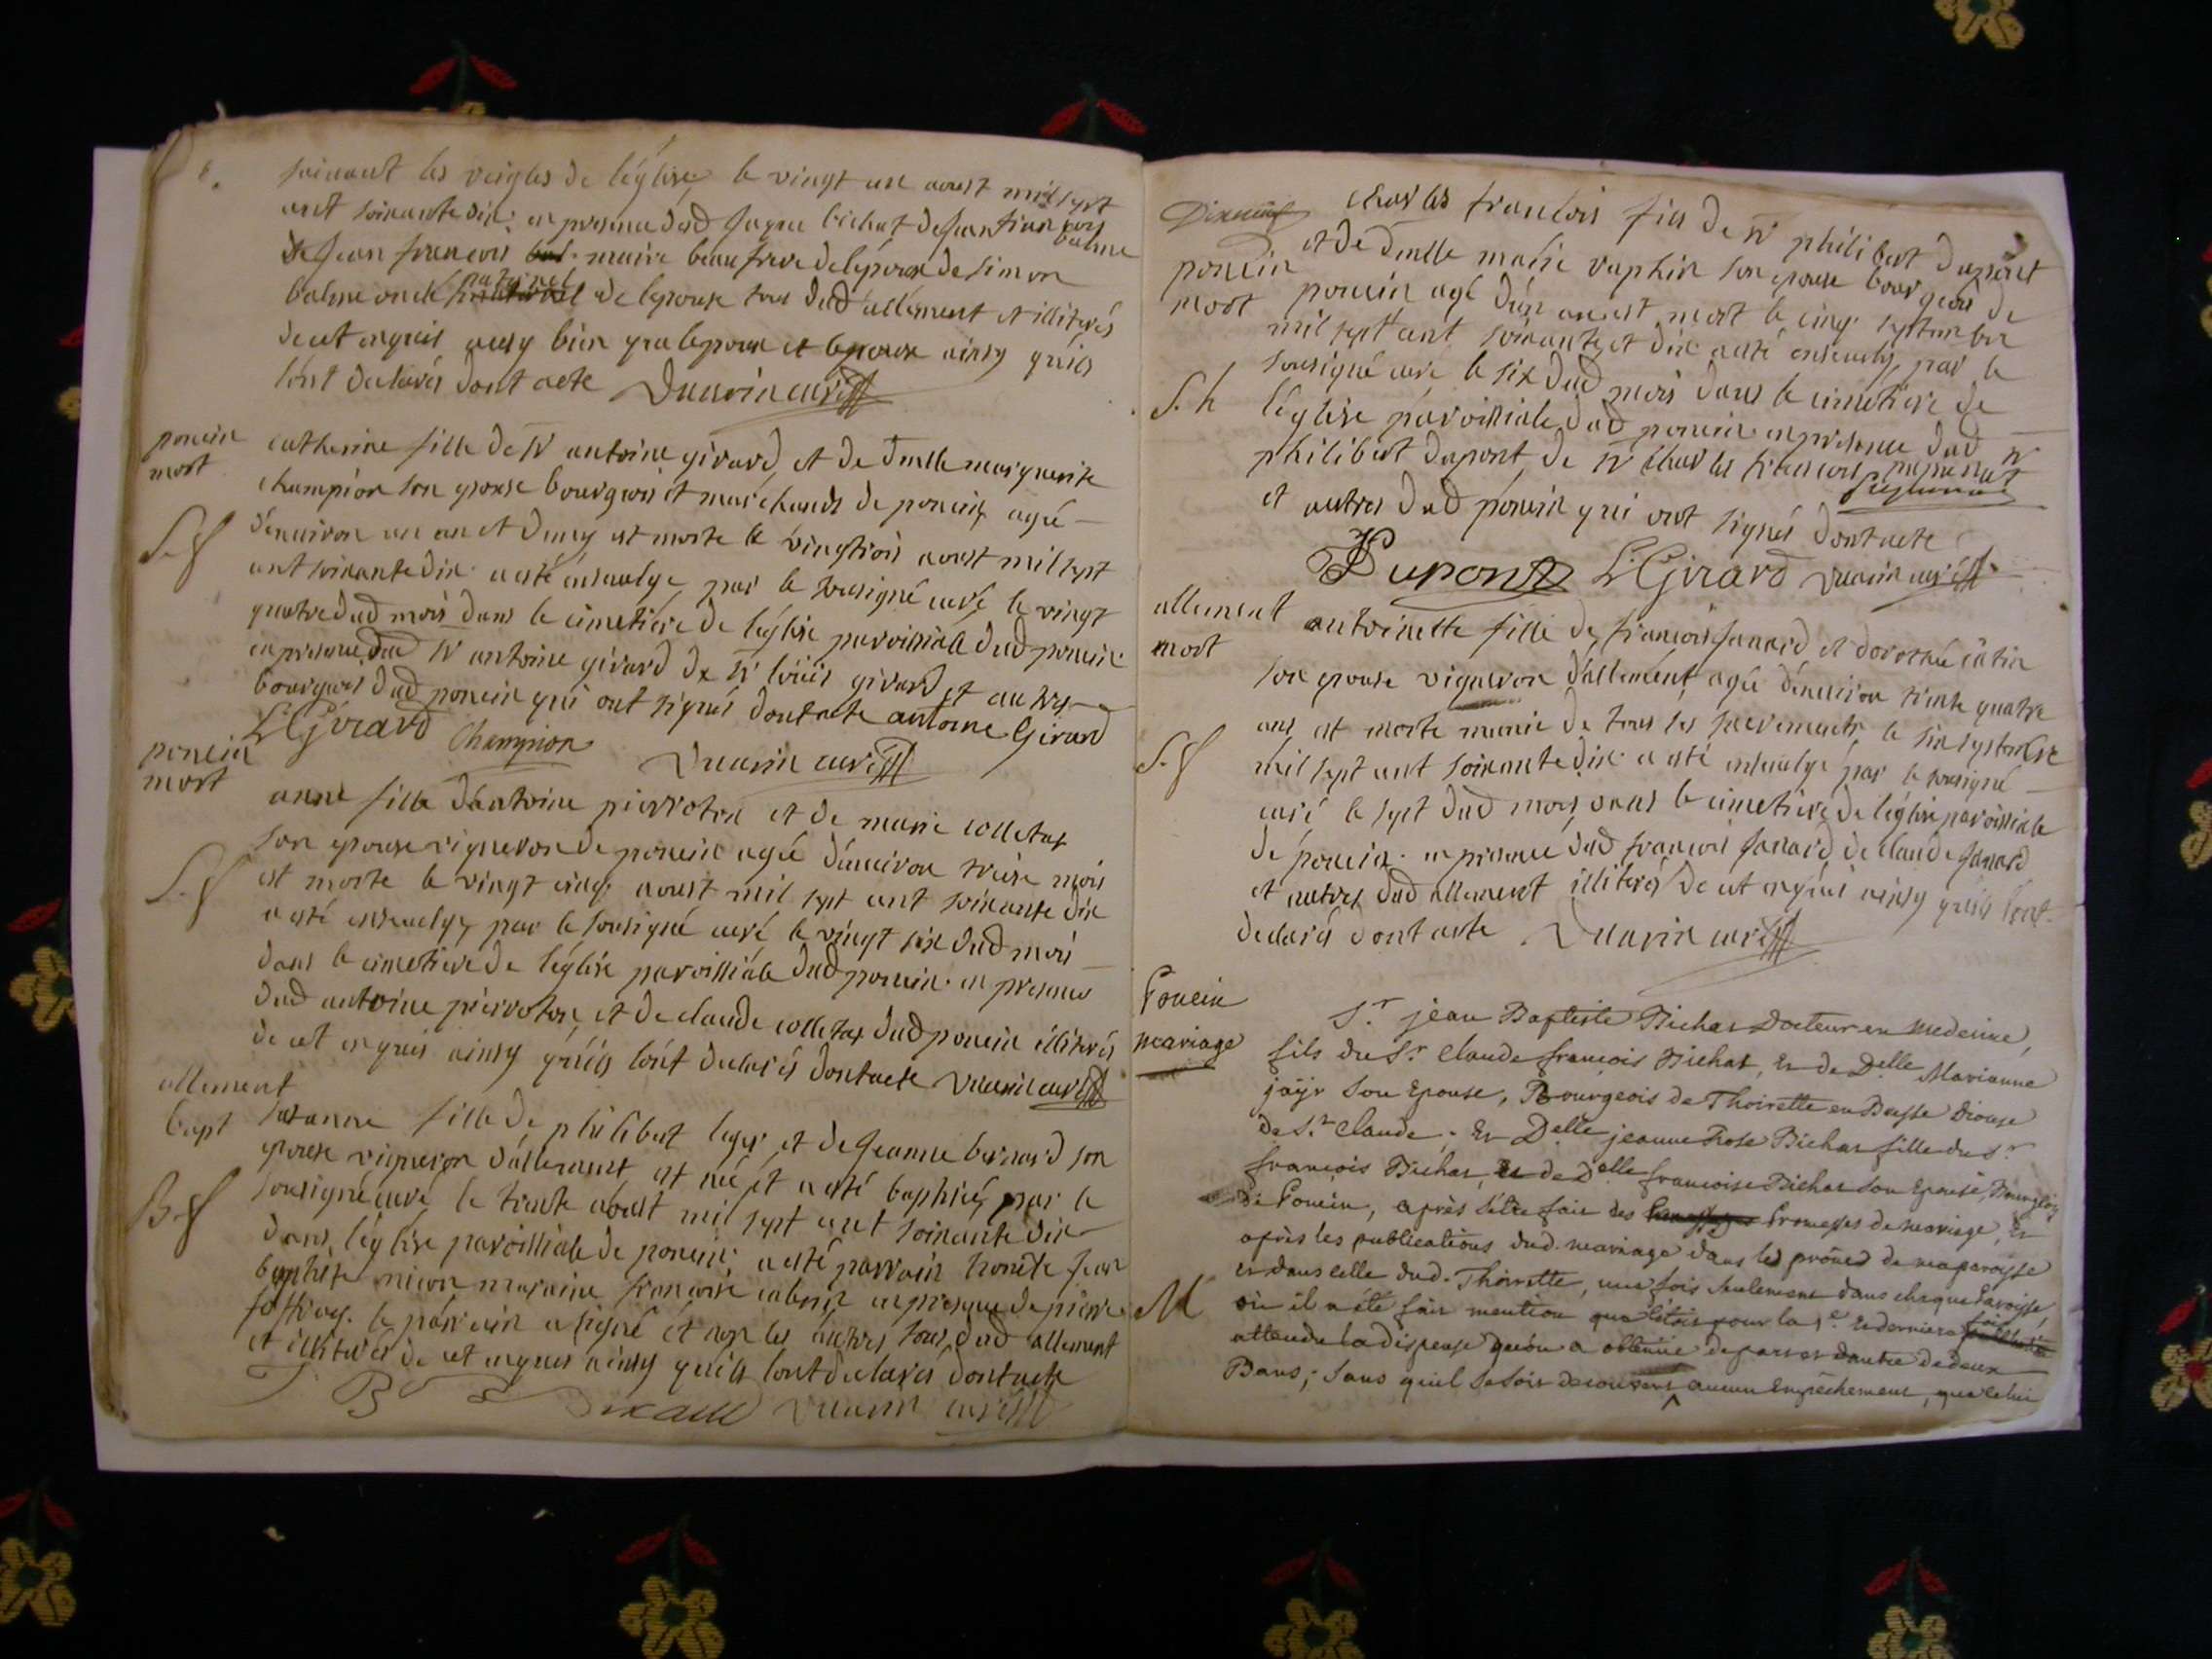 suivant les reigles de léglise le vingt un aoust mil sept
cent soixante dix. en presence dud Jaque bichat de Jean francois balme
de Jean francois maire beaufrere de lépoux de simon
balme oncle paternel de lepouse tous dud allement et illiterés
de cet enquis aussy bien que lepoux et lepouse ainsy quils
lont declarés dont acte curé
poncin
mort
catherine fille de Sr antoine girard, et de Dmlle marguerite
champion son epouse bourgeois et marchands de poncin, agée
S. f
d'environ un an et demy est morte le vingtrois aoust mil sept
cent soixante dix a esté ensevelye, par le sousigné curé le vingt
quatre dud mois dans le cimetière de léglise paroissiale dud poncin
en presence dud Sr antoine girard de Sr loüis girard et autres
bourgeois dud poncin qui ont signés dont acte antoine Girard
L Girard Champion curé
poncin
mort
anne fille d'antoine pierroton et de marie colletax
son epouse vigneron de poncin agée d'environ treise mois
S. f
est morte le vingt cinq aoust mil sept cent soixante dix
a esté ensevelye, par le sousigné curé le vingt six dud mois
dans le cimetiere de léglise paroissiale dud poncin. en presence
dud antoine pierroton, et de claude colletax dud poncin illiterés
de cet enquis ainsy quils lont declarés dont acte curé
allement
bapt
susanne fille de philibert leger et de Jeanne bernard son
epouse vigneron d'allement est née et a esté baptisée, par le
B. f
sousigné curé le trente aoust mil sept cent soixante dix
dans léglise paroissiale de poncin, a esté parrain honête Jean
baptiste maraine francoise en presence de pierre
le parrain a signé et non les autres tous dud allement
et illiterés de cet enquis ainsy quils lont declarés dont acte
curé
charles francois fils de Sr philibert dupont
et de Dmlle marie vuphin son epouse bourgeois de
poncin
mort
poncin agé d'un an est mort le cinq septembre
mil sept cent soixante et dix a esté ensevely, par le
sousigné curé le six dud mois dans le cimetiere de
S. h
léglise paroissiale dud poncin en presence dud Sr
philibert dupont de Sr charles francois
et autres dud poncin qui ont signés dont acte
Dupont L Girard curé
allement
mort
antoinette fille de francois Janard et dorothée
son epouse vigneron d'allement, agée d'environ trente quatre
ans est morte munie de tous les sacrements le six septembre
S. f
mil sept cent soixante dix a esté ensevelye par le sousigné
curé le sept dud mois dans le cimetiere de léglise paroissiale
de poncin. en presence dud francois Janard de claude Janard
et autres dud allement illiterés de cet enquis ainsy quils lont
declarés dont acte curé
Poncin
mariage
S.r jean Baptiste Bichat Docteur en medecine,
fils du S.r Claude françois Bichat, et de Delle Marianne
jäÿr son Epouse, Bourgeois de Thoirette en Bresse Diocese
de S.t Claude. Et Delle jeanne Rose Bichat fille du S.r
françois Bichat, et de Delle françoise Bichat son Epouse, Bourgeois
de Poncin, après s'être fait des Promesses de mariage, Et
après les publications dud. mariage dans les prônes de ma paroisse
et dans celle dud. Thoirette, une fois seulement dans chaque Paroisse,
M
où il a été fait mention que c'étoit pour la 1.e et derniere fois
attendu la dispense qu'on a obtenüe de part et d'autre de deux
Bans; sans qu'il se soit decouvert aucun Empêchement, que celui